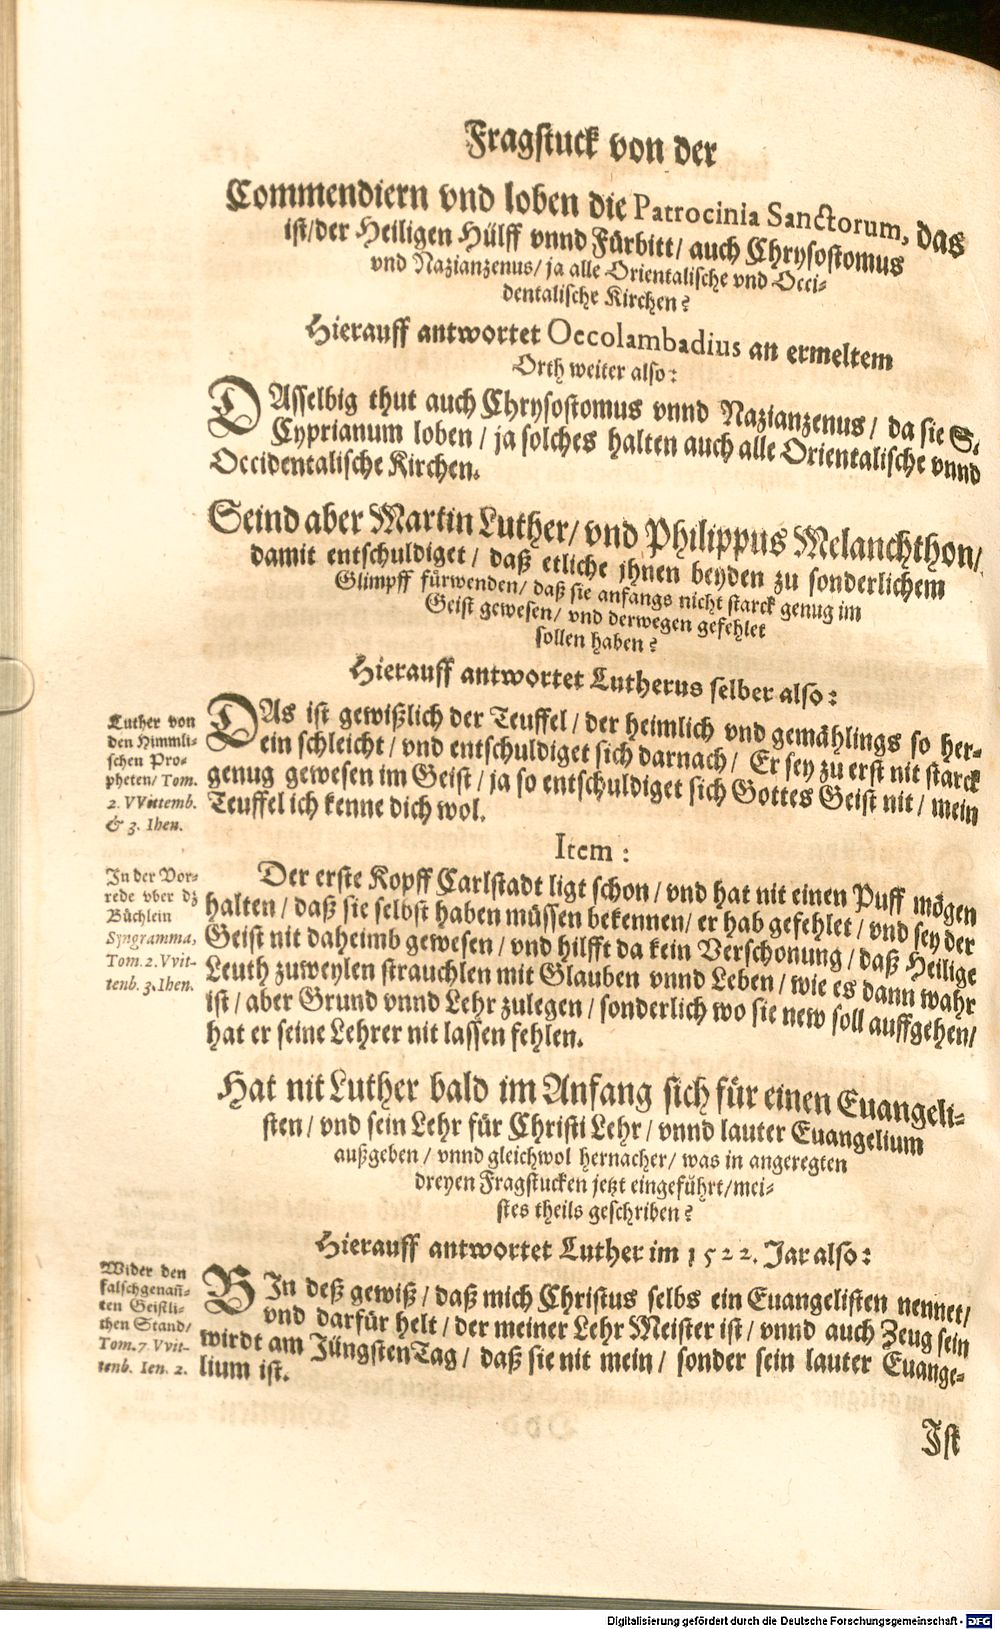 Fragstuck von der
Commendiern vnd loben die Patrocinia Sanctorum, das
ist/der Heiligen Hülff vnnd Fürbitt/ auch Chrysostomus
vnd Nazianzenus/ ja alle Orientalische vnd Occi-
dentalische Kirchen?
Hierauff antwortet Occolambadius an ermeltem
Orth weiter also:
DAsselbig thut auch Chrysostomus vnnd Nazianzenus/ da sie S.
Cyprianum loben / ja solches halten auch alle Orientalische vnnd
Occidentalische Kirchen.
Seind aber Martin Luther/ vnd Philippus Melanchthon/
damit entschuldiget / daß etliche jhnen beyden zu sonderlichem
Glimpff fürwenden/ daß sie anfangs nicht starck genug im
Geist gewesen/ vnd derwegen gefehlet
sollen haben?
Hierauff antwortet Lutherus selber also:
DAs ist gewißlich der Teuffel / der heimlich vnd gemählings so her-
ein schleicht / vnd entschuldiget sich darnach / Er sey zu erst nit starck
genug gewesen im Geist / ja so entschuldiget sich Gottes Geist nit / mein
Teuffel ich kenne dich wol.
Luther von
den Himmli-
schen Pro-
pheten/ Tom.
2. VVittemb.
& 3. Ihen.
Item:
Der erste Kopff Carlstadt ligt schon / vnd hat nit einen Puff mögen
halten / daß sie selbst haben müssen bekennen/ er hab gefehlet / vnd sey der
Geist nit daheimb gewesen / vnd hilfft da kein Verschonung / daß Heilige
Leuth zuweylen strauchlen mit Glauben vnnd Leben / wie es dann wahr
ist / aber Grund vnnd Lehr zulegen / sonderlich wo sie new soll auffgehen/
hat er seine Lehrer nit lassen fehlen.
In der Vor-
rede vber dz
Büchlein
Syngramma,
Tom. 2. Vvit-
tenb. 3. Ihen.
Hat nit Luther bald im Anfang sich für einen Euangeli-
sten / vnd sein Lehr für Christi Lehr / vnnd lauter Euangelium
außgeben / vnnd gleichwol hernacher / was in angeregten
dreyen Fragstucken jetzt eingeführt/mei-
stes theils geschriben?
Hierauff antwortet Luther im 1522. Jar also:
BIn deß gewiß / daß mich Christus selbs ein Euangelisten nennet/
vnd darfür helt / der meiner Lehr Meister ist / vnnd auch Zeug sein
wirdt am Jüngsten Tag / daß sie nit mein / sonder sein lauter Euange-
lium ist.
Wider den
falschgenañ-
ten Geistli-
chen Stand/
Tom. 7 Vvit-
tenb. Ien. 2.
Ist
Digitalisierung gefördert durch die Deutsche Forschungsgemeinschaft - DFG